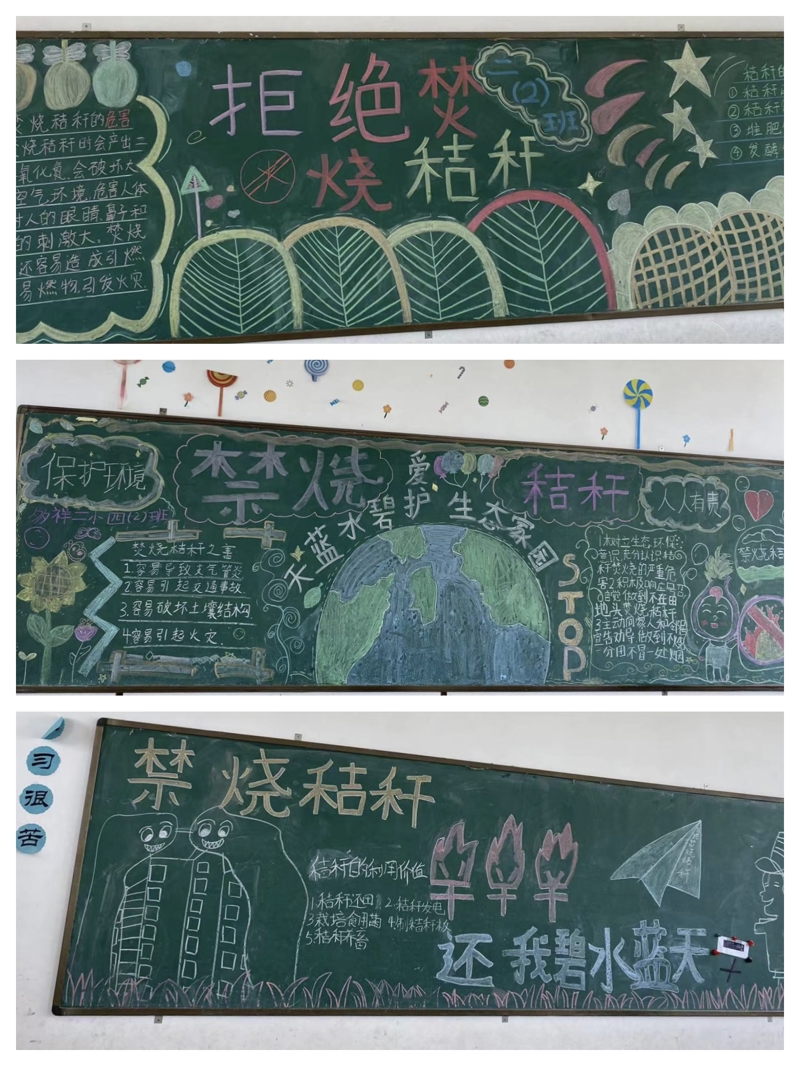 拒绝焚
烧秸秆
二
(2)
班
焚烧秸秆的危害
烧秸秆时会产生二
氧化氮,会破坏大
空气,环境,危害人体
对人的眼睛,鼻子和
的刺激大,焚烧
还容易造成引燃
易燃物,引发火灾.
秸秆的
①秸秆
②秸秆
③堆肥
④发酵
保护环境
禁烧
爱护生态家园
秸秆
人人有责
天蓝水碧
祥二小四(2)班
焚烧秸秆之害
1.容易导致支气管炎
2.容易引起交通事故
3.容易破坏土壤结构
4.容易引起火灾.
STOP
1.树立生态环保
意识,充分认识秸
秆焚烧的严重危
害2.积极响应
自觉做到不在田
地头焚烧秸秆
3.主动向家人和
宣告劝导,做到不烧
一分田不冒一处烟
禁烧秸
习
很
苦
禁烧秸秆
秸秆的利用价值
1.秸秆还田 2.秸秆发电
3.栽培食用菌 4.制秸秆板
5.秸秆养畜
还我碧水蓝天